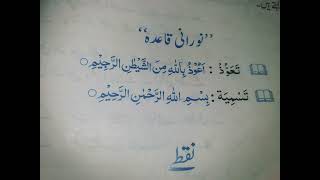 ”نورانی قاعدہ“
تَعَوُّذْ : اَعُوْذُ بِاللّٰهِ مِنَ الشَّيْطٰنِ الرَّجِيْمِ ○
تَسْمِيَة : بِسْمِ اللّٰهِ الرَّحْمٰنِ الرَّحِيْمِ ○
نقطے